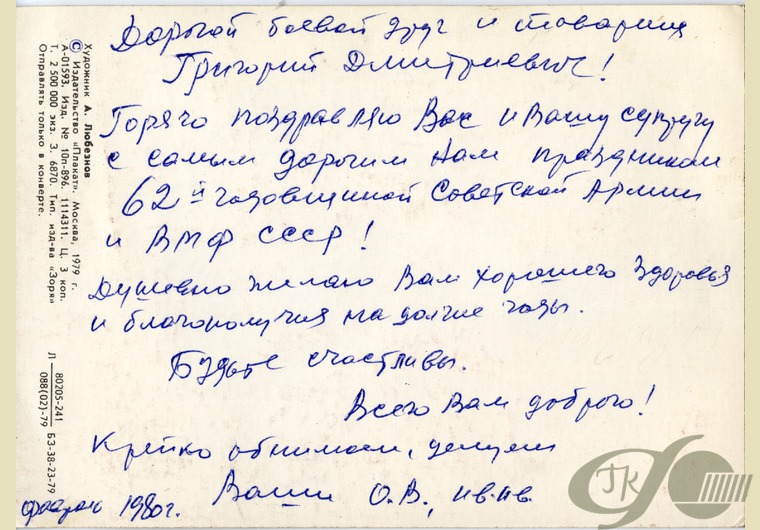 Дорогой боевой друг и товарищ
Григорий Дмитриевич!
Горячо поздравляю Вас и Вашу супругу
с самым дорогим нам праздником
62й годовщиной Советской Армии
и ВМФ СССР!
Душевно желаю Вам хорошего здоровья
и благополучия на долгие годы.
Будьте счастливы.
Всего Вам доброго!
Крепко обнимаем, целуем
Ваши О.В., Ив.Ив.
февраль 1980г.
Художник А. Любезнов
© Издательство «Плакат». Москва, 1979 г.
А-01593. Изд. № 10п-896. 1114311. Ц. 3 коп.
Т. 2 500 000 экз. З. 6870. Тип. изд-ва «Зоря»
Отправлять только в конверте.
Л 80205-241 БЗ-38-23-79
088(02)-79
ГК